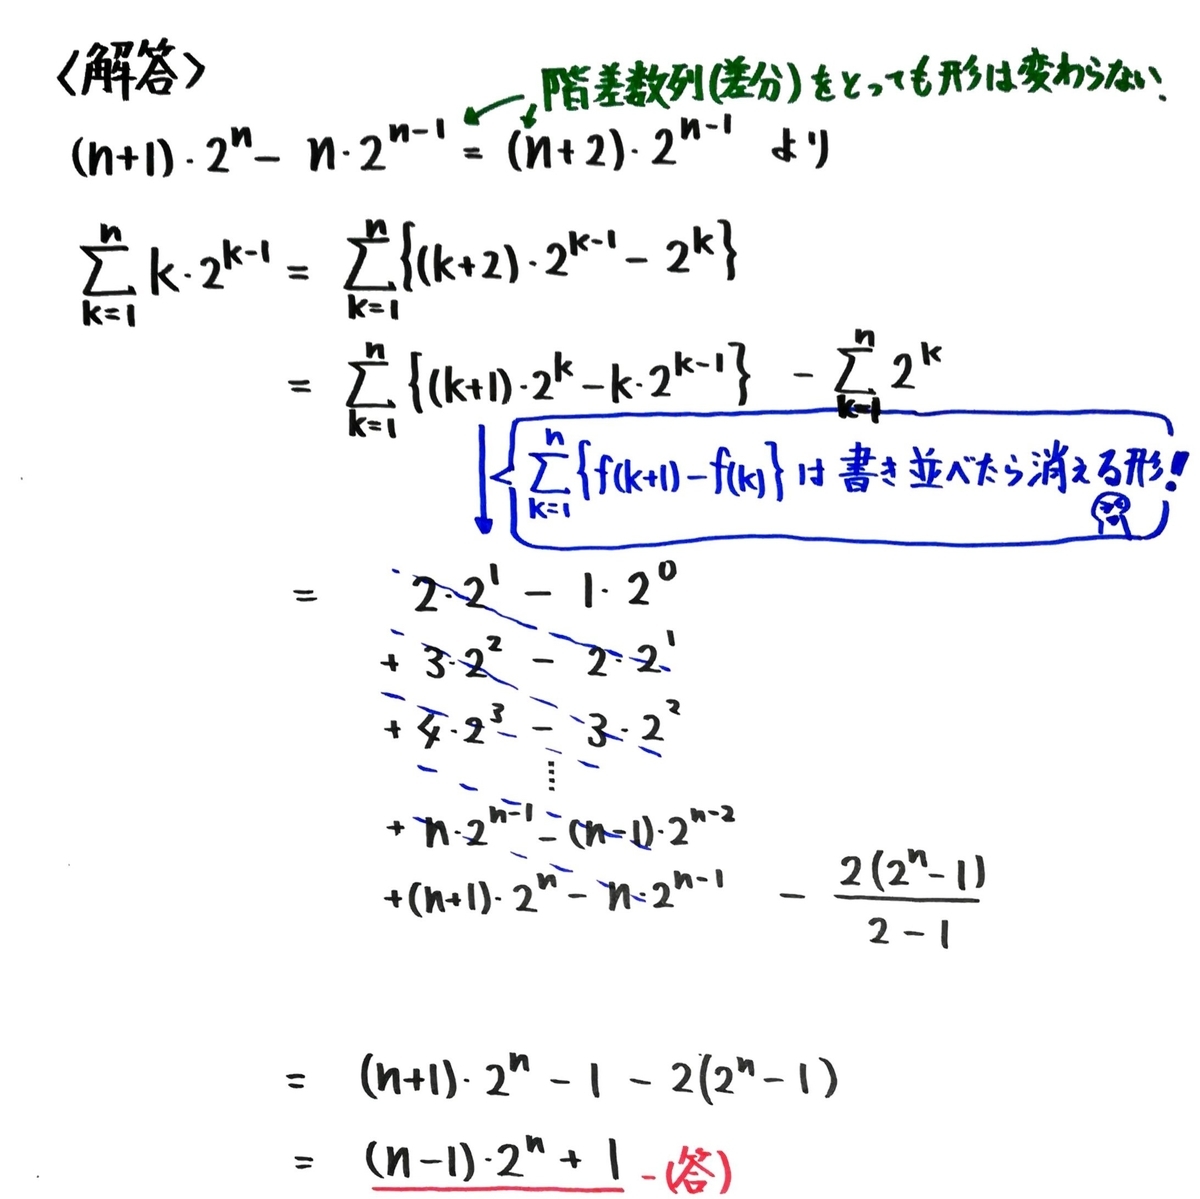 〈解答〉
階差数列(差分)をとっても形は変わらない.
(n+1)・2^n - n・2^{n-1} = (n+2)・2^{n-1} より
∑_{k=1}^{n} k・2^{k-1} = ∑_{k=1}^{n} {(k+2)・2^{k-1} - 2^k}
= ∑_{k=1}^{n} {(k+1)・2^k - k・2^{k-1}} - ∑_{k=1}^{n} 2^k
∑_{k=1}^{n} {f(k+1) - f(k)} は書き並べたら消える形!
= 2・2^1 - 1・2^0
+ 3・2^2 - 2・2^1
+ 4・2^3 - 3・2^2
⋮
+ n・2^{n-1} - (n-1)・2^{n-2}
+ (n+1)・2^n - n・2^{n-1} - \frac{2(2^n - 1)}{2 - 1}
= (n+1)・2^n - 1 - 2(2^n - 1)
= (n-1)・2^n + 1 -(答)